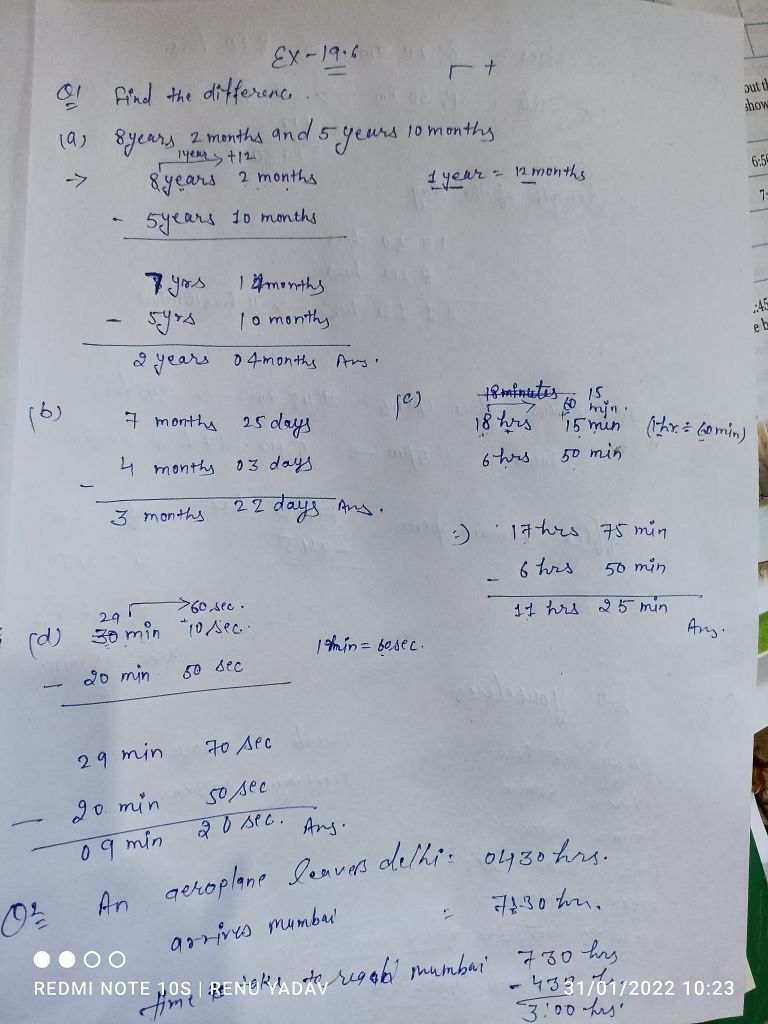 Ex-19.6
Q1 Find the difference.
(a) 8years 2 months and 5 years 10 months
1year +12
→ 8years 2 months 1 year = 12 months
- 5years 10 months
7 yrs 14months
- 5yrs 10 months
2 years 04months Ans.
(b)
7 months 25 days
4 months 03 days
-
3 months 22 days Ans.
(c)
18minutes 15
60 min.
18 hrs 15 min (1hr = 60min)
6 hrs 50 min
=) 17 hrs 75 min
- 6 hrs 50 min
11 hrs 25 min
Ans.
29 → 60 sec.
(d) 30 min +10 sec. 1min = 60sec.
- 20 min 50 sec
29 min 70 sec
- 20 min 50 sec
09 min 20 sec. Ans.
Q2 An aeroplane leaves delhi = 0430 hrs.
arrives mumbai = 7:30 hr.
time to reach mumbai 730 hrs
3:00 hrs.
REDMI NOTE 10S | RENU YADAV 31/01/2022 10:23